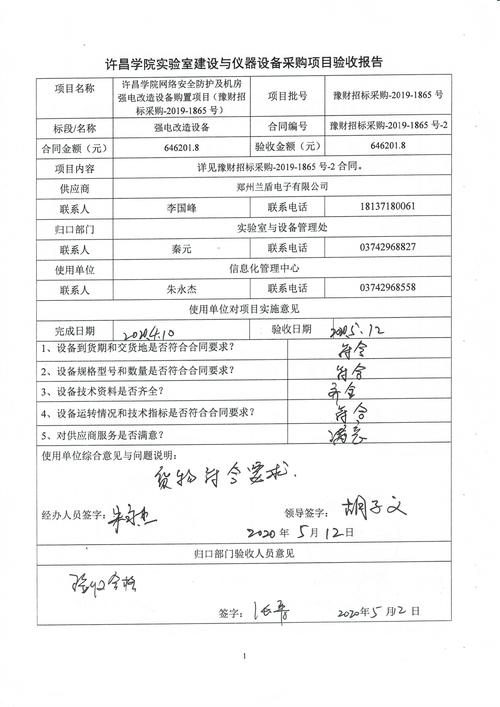 许昌学院实验室建设与仪器设备采购项目验收报告
项目名称 许昌学院网络安全防护及机房强电改造设备购置项目（豫财招标采购-2019-1865号） 项目批号 豫财招标采购-2019-1865 号
标段/名称 强电改造设备 合同编号 豫财招标采购-2019-1865 号-2
合同金额（元） 646201.8 验收金额（元） 646201.8
项目内容 详见豫财招标采购-2019-1865 号-2 合同。
供应商 郑州兰盾电子有限公司
联系人 李国峰 联系电话 18137180061
归口部门 实验室与设备管理处
联系人 秦元 联系电话 03742968827
使用单位 信息化管理中心
联系人 朱永杰 联系电话 03742968558
使用单位对项目实施意见
完成日期 2020.4.10 验收日期 5.12
1、设备到货期和交货地是否符合合同要求？ 符合
2、设备规格型号和数量是否符合合同要求？ 符合
3、设备技术资料是否齐全？ 齐全
4、设备运转情况和技术指标是否符合合同要求？ 符合
5、对供应商服务是否满意？ 满意
使用单位综合意见与问题说明：
货物符合要求.
经办人员签字：朱永杰 领导签字：胡子文
2020 年 5 月 12 日
归口部门验收人员意见
验收合格
签字： 2020年5月12日
1